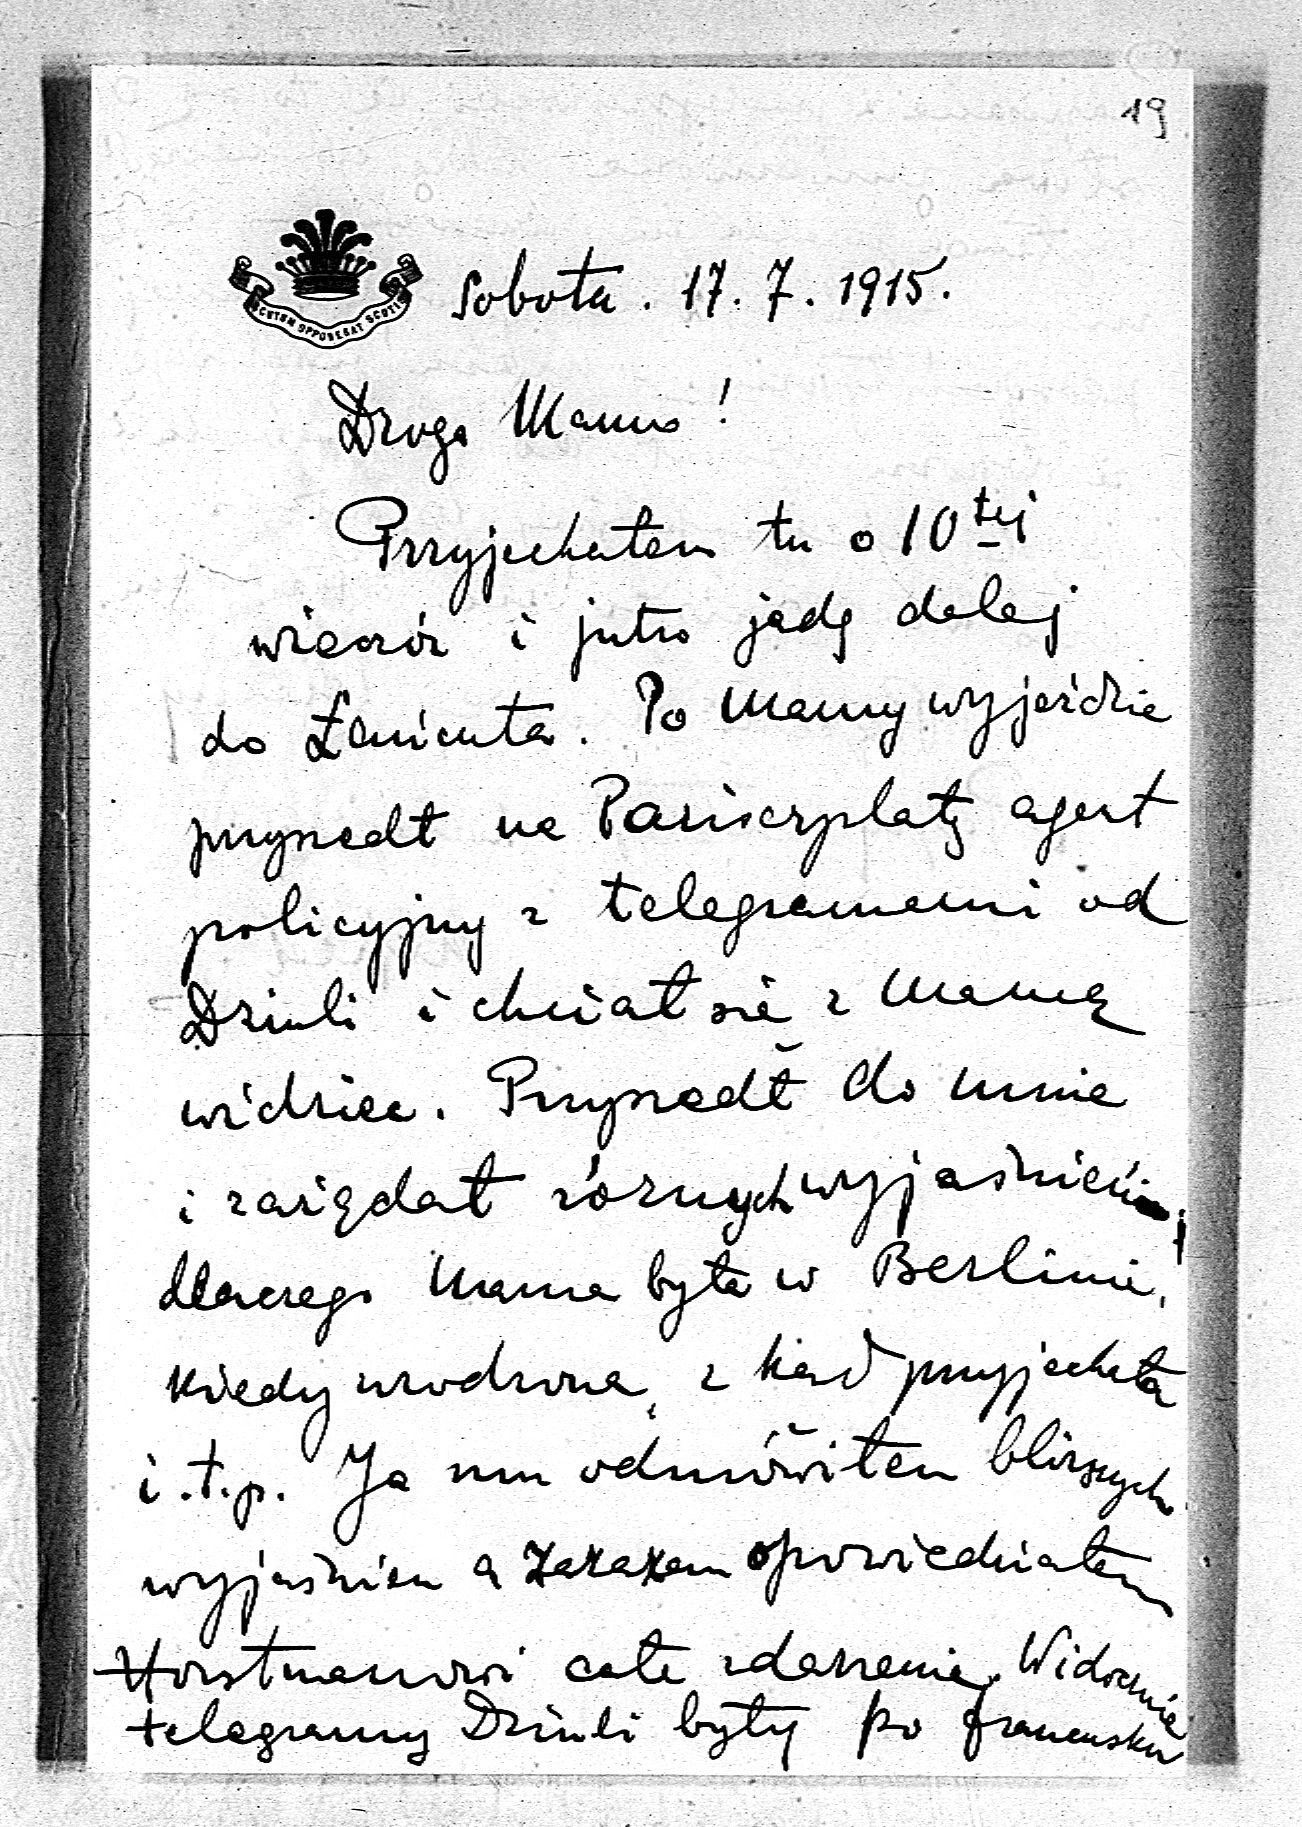 19
SCUTUM OPPONEBAT SCOTIS
Sobota. 17. 7. 1915.
Droga Mamo!
Przyjechałem tu o 10tej
wieczór i jutro jadę dalej
do Łańcuta. Po Mamy wyjeździe
przyszedł na Pariserplatz agent
policyjny z telegramami od
Dziuli i chciał się z Mamą
widzieć. Przyszedł do mnie
i zażądał różnych wyjaśnień
dlaczego Mama była w Berlinie,
kiedy urodzona, z kąd przyjechała
i.t.p. Ja mu odmówiłem bliższych
wyjaśnień a zarazem opowiedziałem
Horstmanowi całe zdarzenie. Widocznie
telegramy Dziuli były po francusku